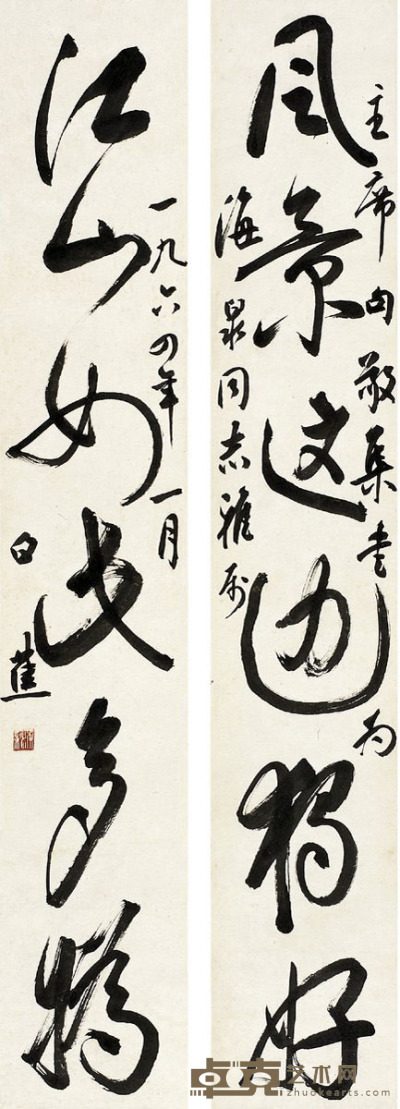 主席句敬集书为
风景这边独好
海泉同志雅属
一九六四年一月
江山如此多娇
白蕉
卓克艺术网
zhuokearts.com